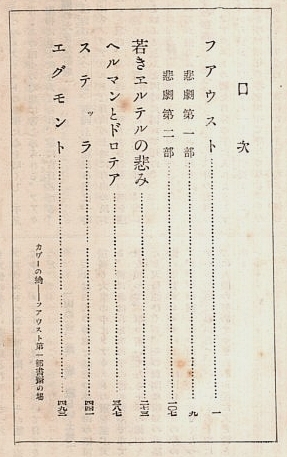 目次
フアウスト……一
悲劇第一部……九
悲劇第二部……一〇七
若きヱルテルの悲み……二七三
ヘルマンとドロテア……三八七
ステッラ……四四一
エグモント……四九三
カヴーの繪――フアウスト第一部書齋の場